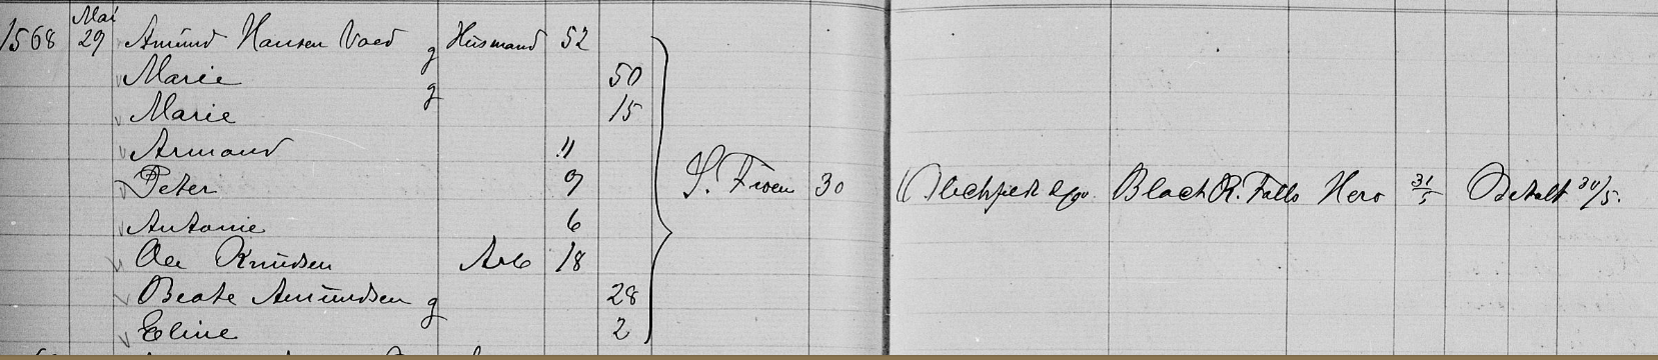 1568 Mai 29 Amund Hansen Voed g Husmand 52
Marie g 50
Marie 15
Armand 11
Peter 9
S. Froen 30 Black R. Falls Hero 31/5 Betalt 30/5.
Antonie 6
Ole Knudsen Arb 18
Beate Amundsen g 28
Eline 2